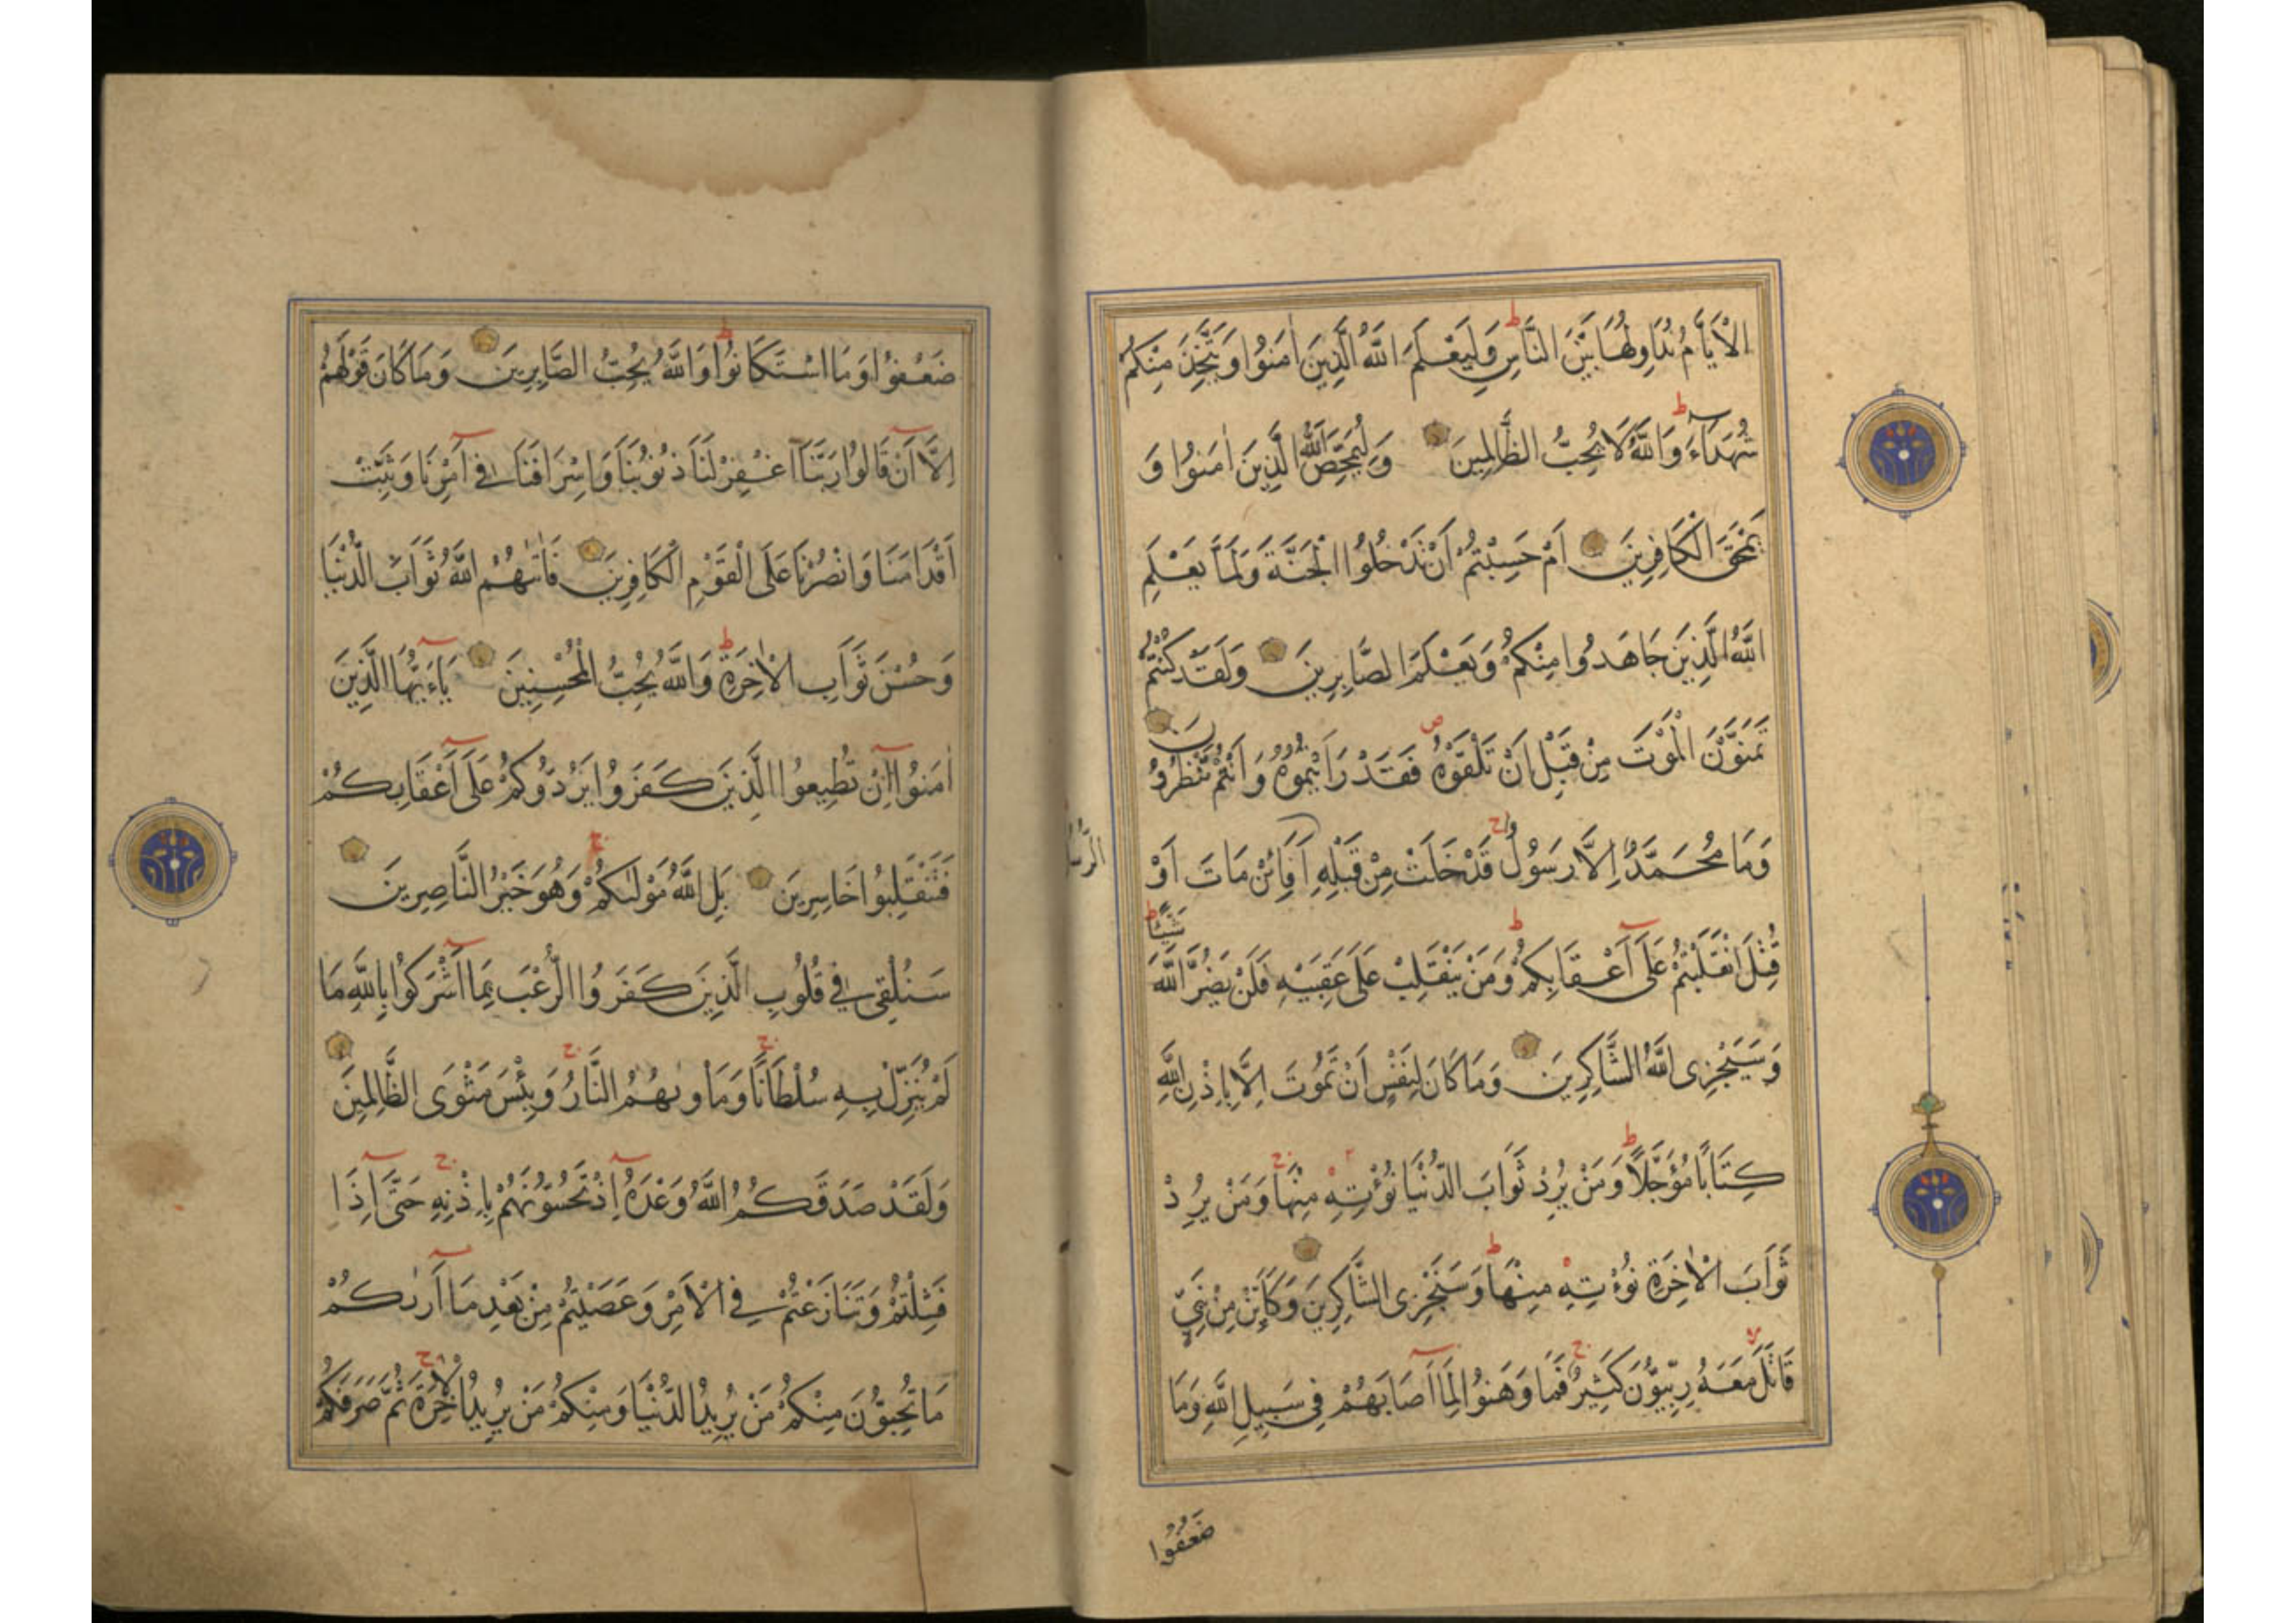 الْاَيَّامُ نُدَاوِلُهَا بَيْنَ النَّاسِ ط وَلِيَعْلَمَ اللّٰهُ الَّذِينَ اٰمَنُوا وَيَتَّخِذَ مِنْكُمْ
شُهَدَاءَ ط وَاللّٰهُ لَا يُحِبُّ الظَّالِمِينَ وَلِيُمَحِّصَ اللّٰهُ الَّذِينَ اٰمَنُوا وَ
يَمْحَقَ الْكَافِرِينَ اَمْ حَسِبْتُمْ اَنْ تَدْخُلُوا الْجَنَّةَ وَلَمَّا يَعْلَمِ
اللّٰهُ الَّذِينَ جَاهَدُوا مِنْكُمْ وَيَعْلَمَ الصَّابِرِينَ وَلَقَدْ كُنْتُمْ
تَمَنَّوْنَ الْمَوْتَ مِنْ قَبْلِ اَنْ تَلْقَوْهُ ص فَقَدْ رَاَيْتُمُوهُ وَاَنْتُمْ تَنْظُرُونَ
وَمَا مُحَمَّدٌ اِلَّا رَسُولٌ ج قَدْ خَلَتْ مِنْ قَبْلِهِ اَفَائِنْ مَاتَ اَوْ
الرُّسُلُ
قُتِلَ انْقَلَبْتُمْ عَلَى اَعْقَابِكُمْ ط وَمَنْ يَنْقَلِبْ عَلَى عَقِبَيْهِ فَلَنْ يَضُرَّ اللّٰهَ شَيْئًا ط
وَسَيَجْزِى اللّٰهُ الشَّاكِرِينَ وَمَا كَانَ لِنَفْسٍ اَنْ تَمُوتَ اِلَّا بِاِذْنِ اللّٰهِ
كِتَابًا مُؤَجَّلًا ط وَمَنْ يُرِدْ ثَوَابَ الدُّنْيَا نُؤْتِهِ مِنْهَا ج وَمَنْ يُرِدْ
ثَوَابَ الْاٰخِرَةِ نُؤْتِهِ مِنْهَا ط وَسَنَجْزِى الشَّاكِرِينَ وَكَاَيِّنْ مِنْ نَبِيٍّ
قَاتَلَ لا مَعَهُ رِبِّيُّونَ كَثِيرٌ ج فَمَا وَهَنُوا لِمَا اَصَابَهُمْ فِي سَبِيلِ اللّٰهِ وَمَا
ضَعُفُوا
ضَعُفُوا وَمَا اسْتَكَانُوا ط وَاللّٰهُ يُحِبُّ الصَّابِرِينَ وَمَا كَانَ قَوْلَهُمْ
اِلَّا اَنْ قَالُوا رَبَّنَا اغْفِرْ لَنَا ذُنُوبَنَا وَاِسْرَافَنَا فِي اَمْرِنَا وَثَبِّتْ
اَقْدَامَنَا وَانْصُرْنَا عَلَى الْقَوْمِ الْكَافِرِينَ فَاٰتٰىهُمُ اللّٰهُ ثَوَابَ الدُّنْيَا
وَحُسْنَ ثَوَابِ الْاٰخِرَةِ ط وَاللّٰهُ يُحِبُّ الْمُحْسِنِينَ يَاءَيُّهَا الَّذِينَ
اٰمَنُوا اِنْ تُطِيعُوا الَّذِينَ كَفَرُوا يَرُدُّوكُمْ عَلَى اَعْقَابِكُمْ
فَتَنْقَلِبُوا خَاسِرِينَ بَلِ اللّٰهُ مَوْلٰىكُمْ ج وَهُوَ خَيْرُ النَّاصِرِينَ
سَنُلْقِى فِي قُلُوبِ الَّذِينَ كَفَرُوا الرُّعْبَ بِمَا اَشْرَكُوا بِاللّٰهِ مَا
لَمْ يُنَزِّلْ بِهِ سُلْطَانًا ج وَمَاْوٰىهُمُ النَّارُ ج وَبِئْسَ مَثْوَى الظَّالِمِينَ
وَلَقَدْ صَدَقَكُمُ اللّٰهُ وَعْدَهُ اِذْ تَحُسُّونَهُمْ بِاِذْنِهِ ج حَتَّى اِذَا
فَشِلْتُمْ وَتَنَازَعْتُمْ فِي الْاَمْرِ وَعَصَيْتُمْ مِنْ بَعْدِ مَا اَرٰىكُمْ
مَا تُحِبُّونَ مِنْكُمْ مَنْ يُرِيدُ الدُّنْيَا وَمِنْكُمْ مَنْ يُرِيدُ الْاٰخِرَةَ ج ثُمَّ صَرَفَكُمْ